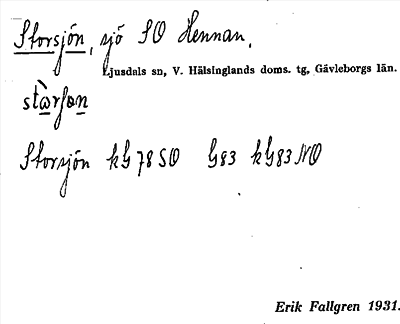 Storsjön, sjö SO Hennan.
Ljusdals sn, V. Hälsinglands doms. tg, Gävleborgs län.
Storsjön kG 78 SO G83 kG83 NO
Erik Fallgren 1931.